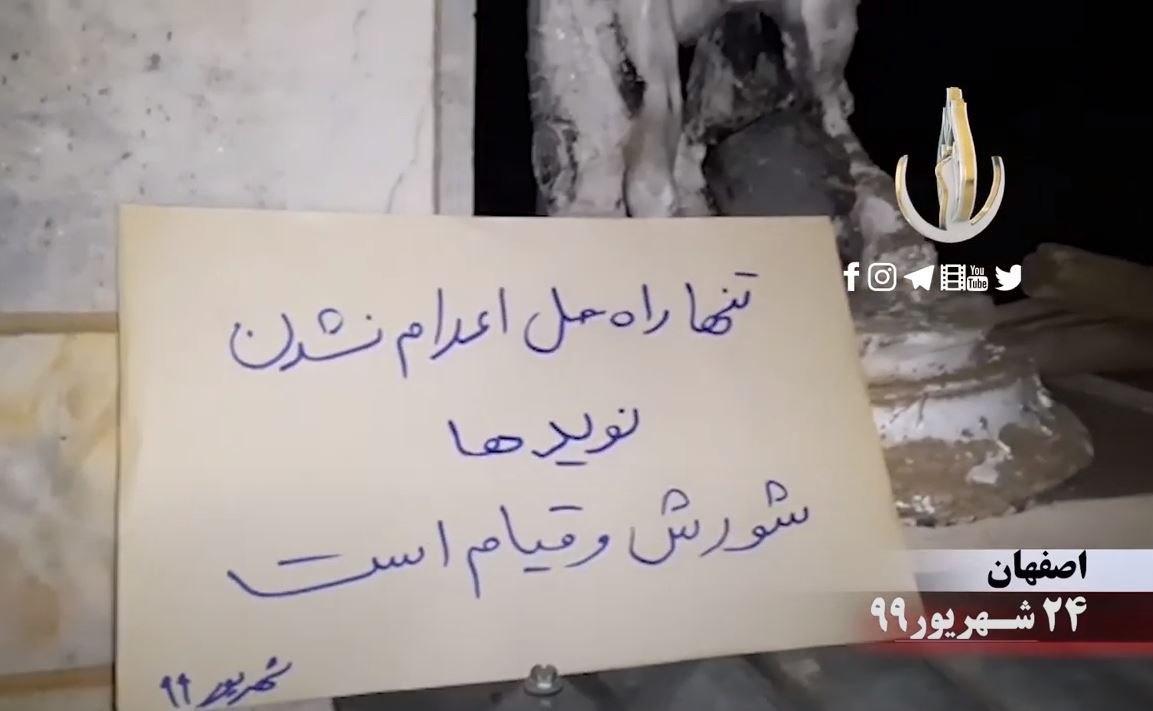 تنها راه حل اعدام نشدن
نوید ها
شورش و قیام است
شهریور ۹۹
You
Tube
اصفهان
۲۴ شهریور۹۹